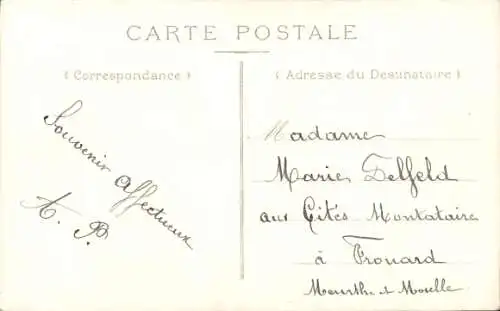 CARTE POSTALE
( Correspondance )
( Adresse du Destinataire )
Souvenir affectueux
A. P.
Madame
Marie Delfeld
aux Cités Montataire
à Frouard
Meurthe et Moselle